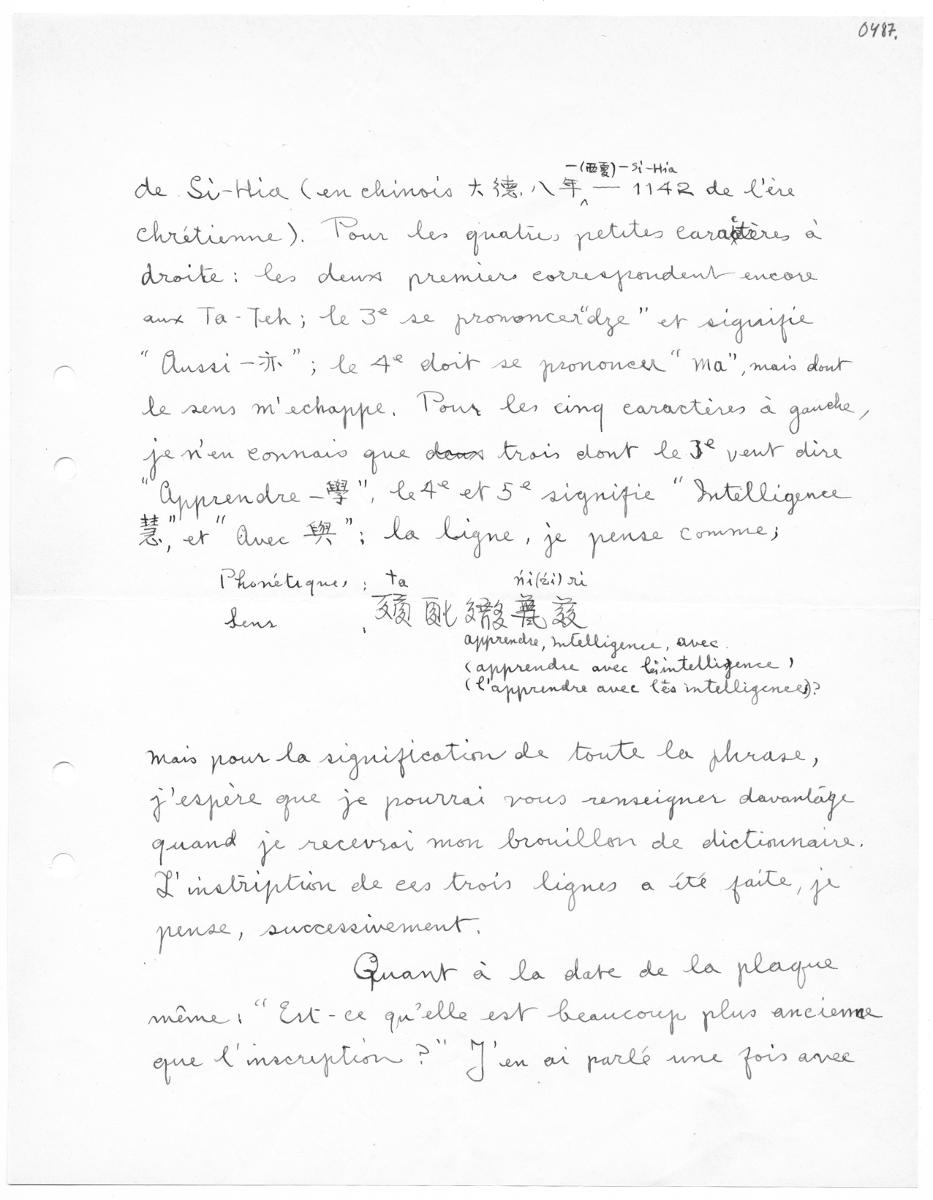 0487.
—(西夏)—Si-Hia
de Si-Hia (en chinois 大德八年 — 1142 de l'ère
chrétienne). Pour les quatres petites caractères à
droite: les deux premiers correspondent encore
aux Ta-Teh; le 3e se prononcer "dze" et signifie
"Aussi — 亦"; le 4e doit se prononcer "ma", mais dont
le sens m'echappe. Pour les cinq caractères à gauche,
je n'en connais que deux trois dont le 3e veut dire
"Apprendre — 學", le 4e et 5e signifie "Intelligence
慧", et "Avec 與"; la ligne, je pense comme;
Phonétiques : ta ńi(źi) ri
Sens :
apprendre, intelligence, avec.
(apprendre avec les intelligence)
(l'apprendre avec les intelligences)?
mais pour la signification de toute la phrase,
j'espère que je pourrai vous renseigner davantage
quand je recevrai mon brouillon de dictionnaire.
L'instription de ces trois lignes a été faite, je
pense, successivement.
Quant à la date de la plaque
même: "Est-ce qu'elle est beaucoup plus ancienne
que l'inscription?" J'en ai parlé une fois avec